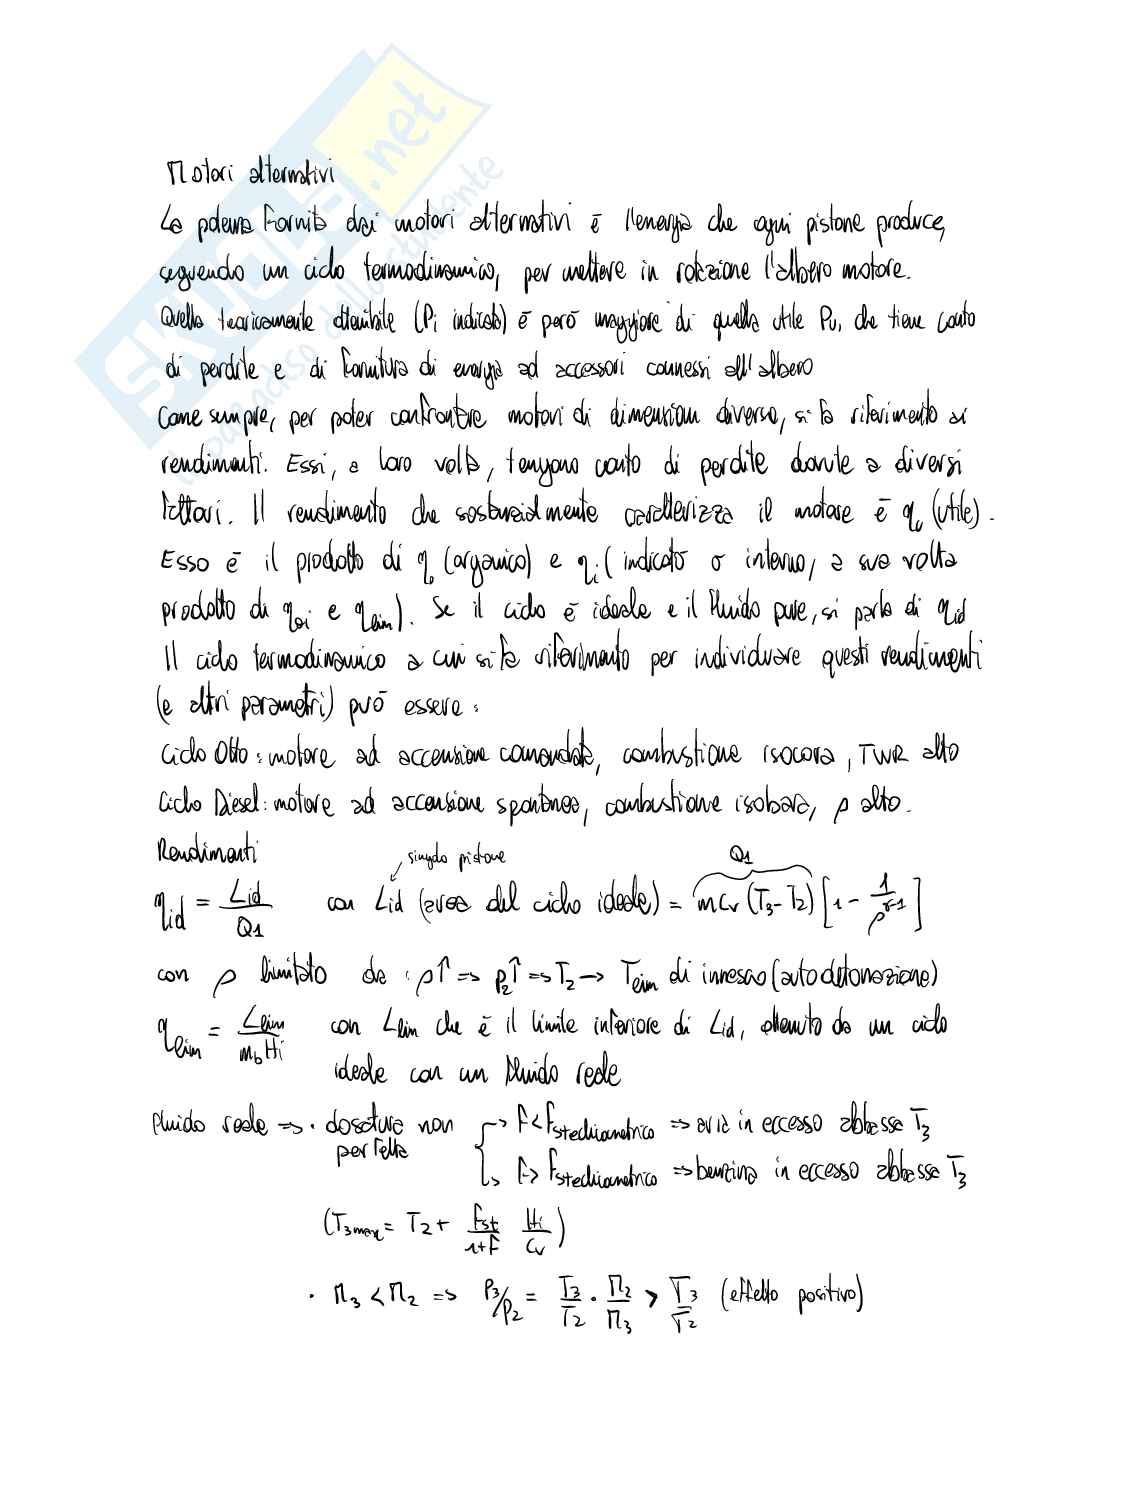 SKUOLA.net
il paradiso dello studente
Motori alternativi
La potenza fornita dai motori alternativi è l'energia che ogni pistone produce,
seguendo un ciclo termodinamico, per mettere in rotazione l'albero motore.
Quella teoricamente ottenibile (Pi indicata) è però maggiore di quella utile Pu, che tiene conto
di perdite e di fornitura di energia ad accessori connessi all'albero
Come sempre, per poter confrontare motori di dimensioni diverse, si fa riferimento ai
rendimenti. Essi, a loro volta, tengono conto di perdite dovute a diversi
fattori. Il rendimento che sostanzialmente caratterizza il motore è ηu (utile).
Esso è il prodotto di ηo (organico) e ηi (indicato o interno, a sua volta
prodotto di ηθi e ηlim). Se il ciclo è ideale e il fluido pure, si parla di ηid
Il ciclo termodinamico a cui si fa riferimento per individuare questi rendimenti
(e altri parametri) può essere:
Ciclo Otto: motore ad accensione comandata, combustione isocora, TWR alto
Ciclo Diesel: motore ad accensione spontanea, combustione isobara, ρ alto.
Rendimenti
singolo pistone
Q1
ηid = Lid/Q1 con Lid (area del ciclo ideale) = mCv (T3-T2) [1 - 1/ρ^(γ-1)]
con ρ limitato da: ρ↑ => p2↑ => T2 → Tlim di innesco (autodetonazione)
ηlim = Llim/(mb Hi) con Llim che è il limite inferiore di Lid, ottenuto da un ciclo
ideale con un fluido reale
Fluido reale => · dosatura non perfetta
→ F<Fstechiometrico => aria in eccesso abbassa T3
↳ F>Fstechiometrico => benzina in eccesso abbassa T3
(T3max = T2 + Fst/(1+F) Hi/Cv)
· M3 < M2 => P3/P2 = T3/T2 · M2/M3 > T3/T2 (effetto positivo)